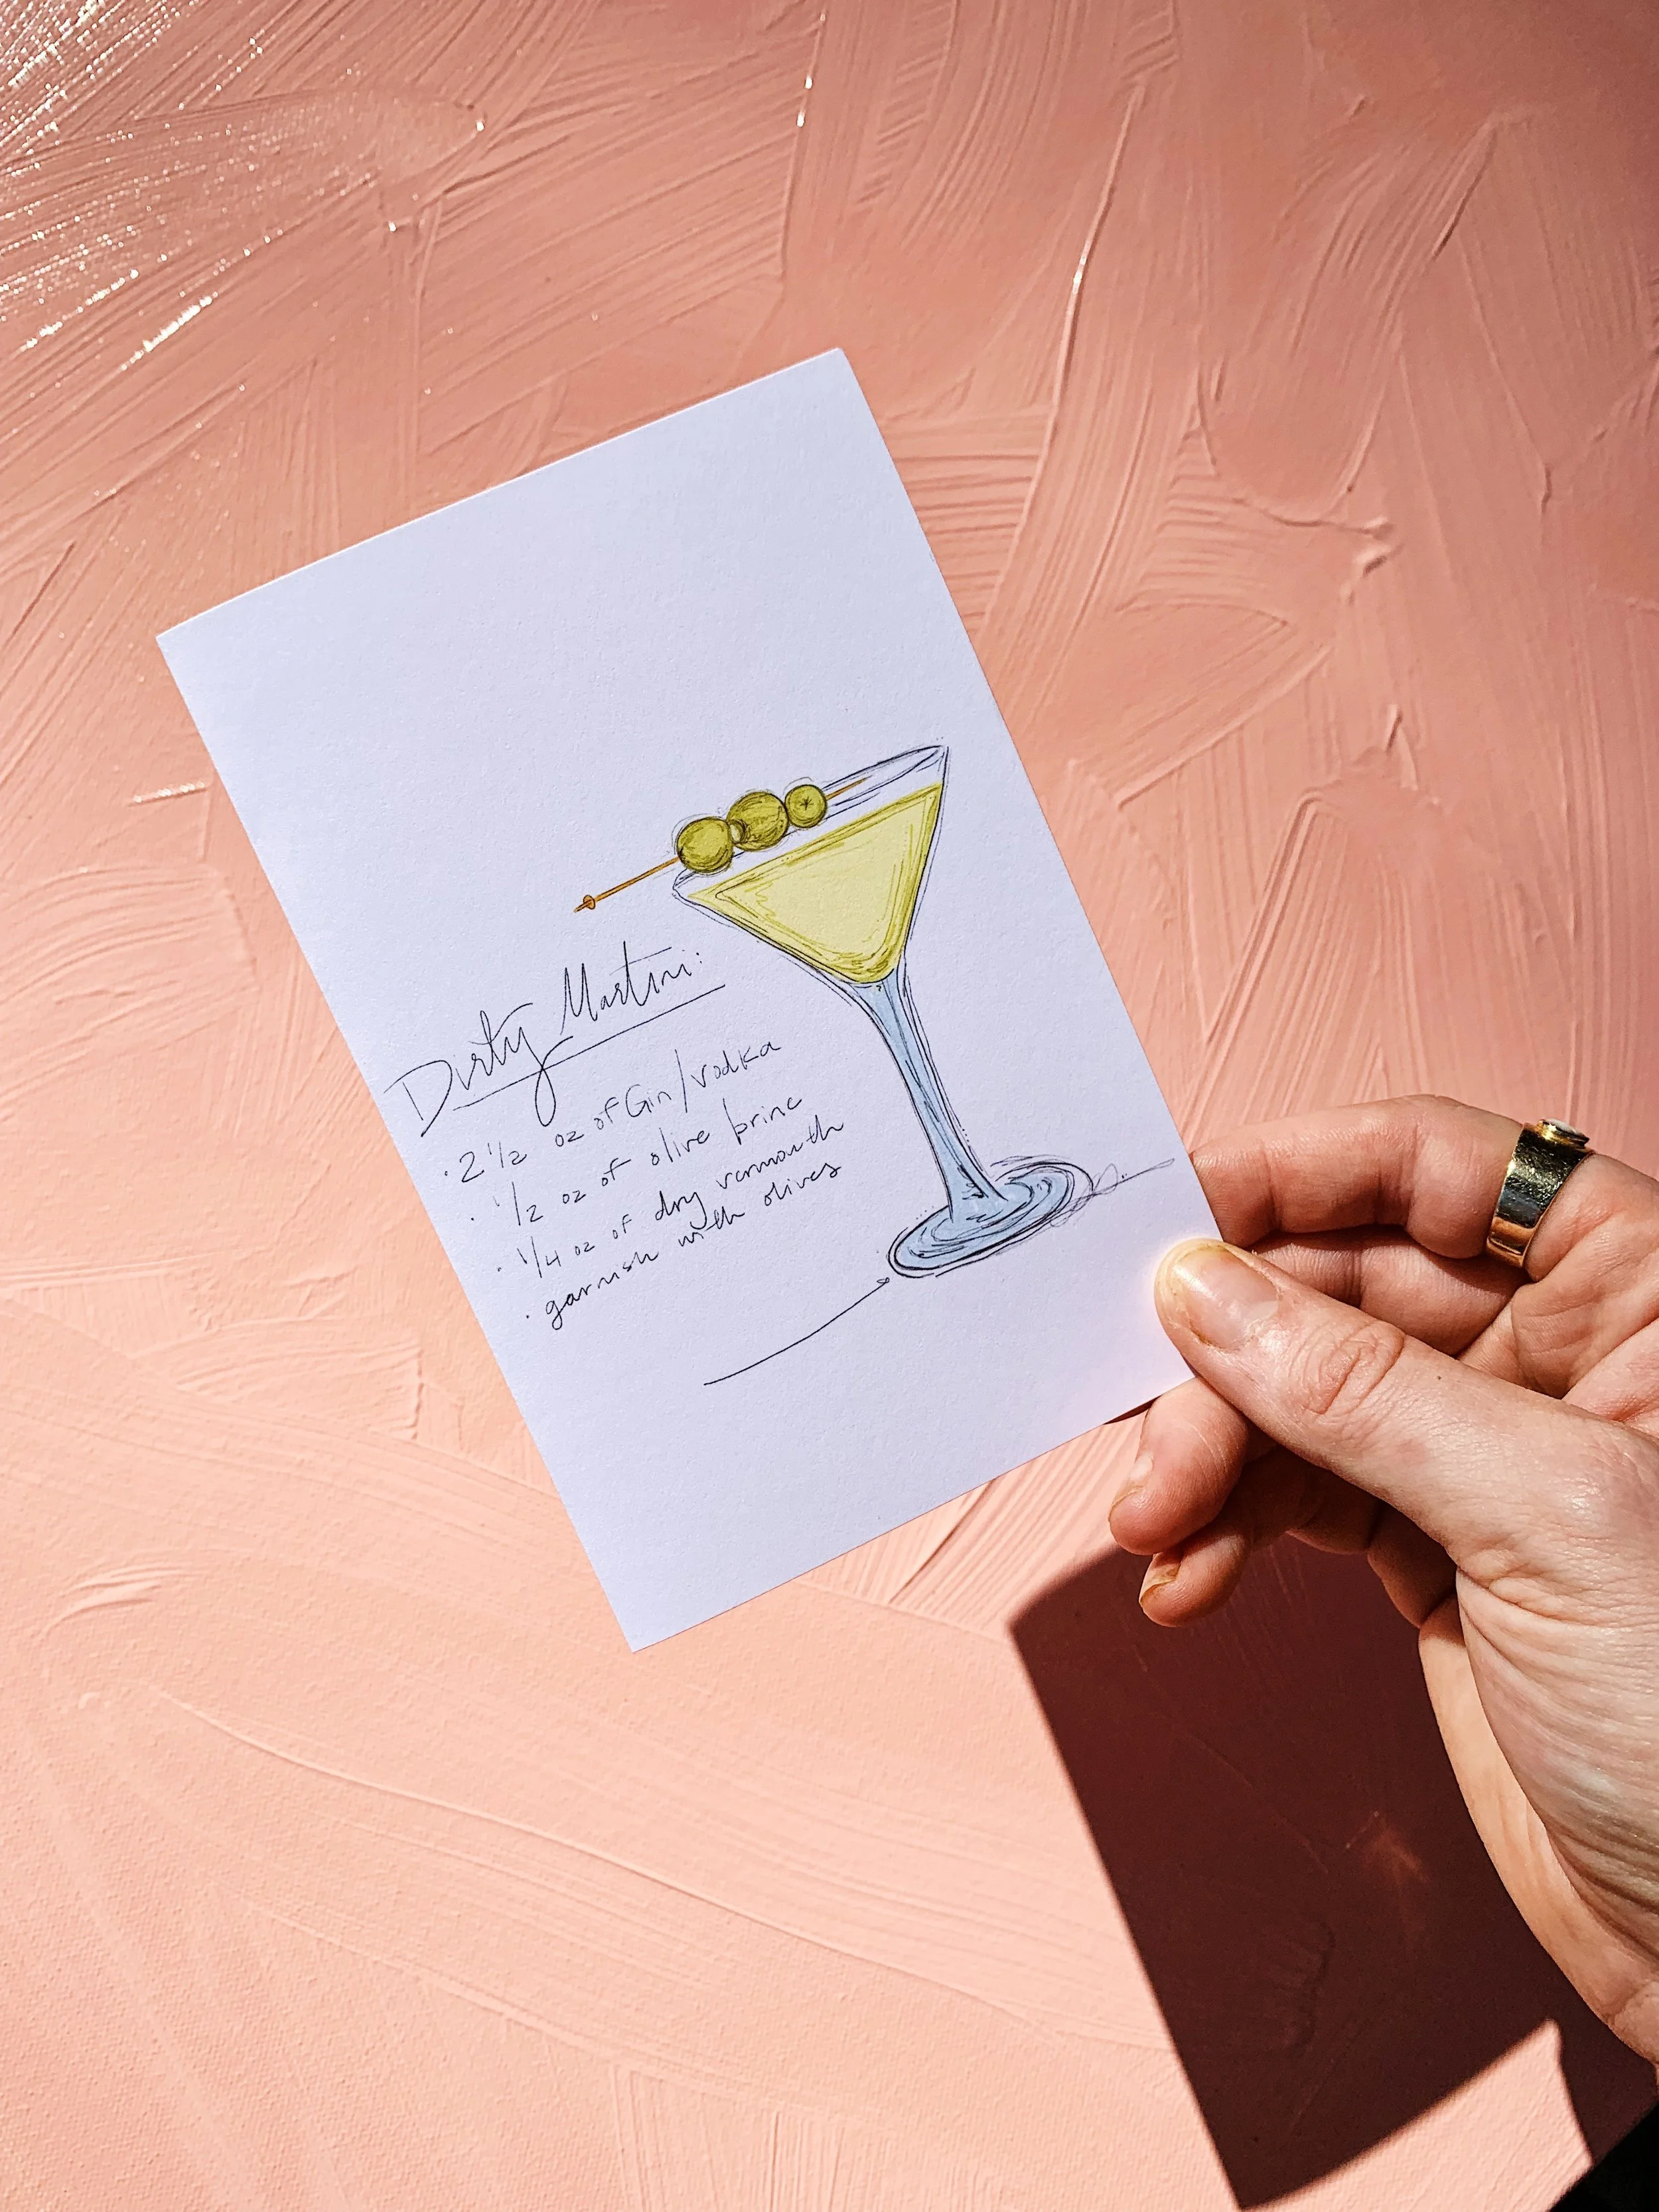 Dirty Martini:
· 2 1/2 oz of Gin/vodka
· 1/2 oz of olive brine
· 1/4 oz of dry vermouth
· garnish with olives